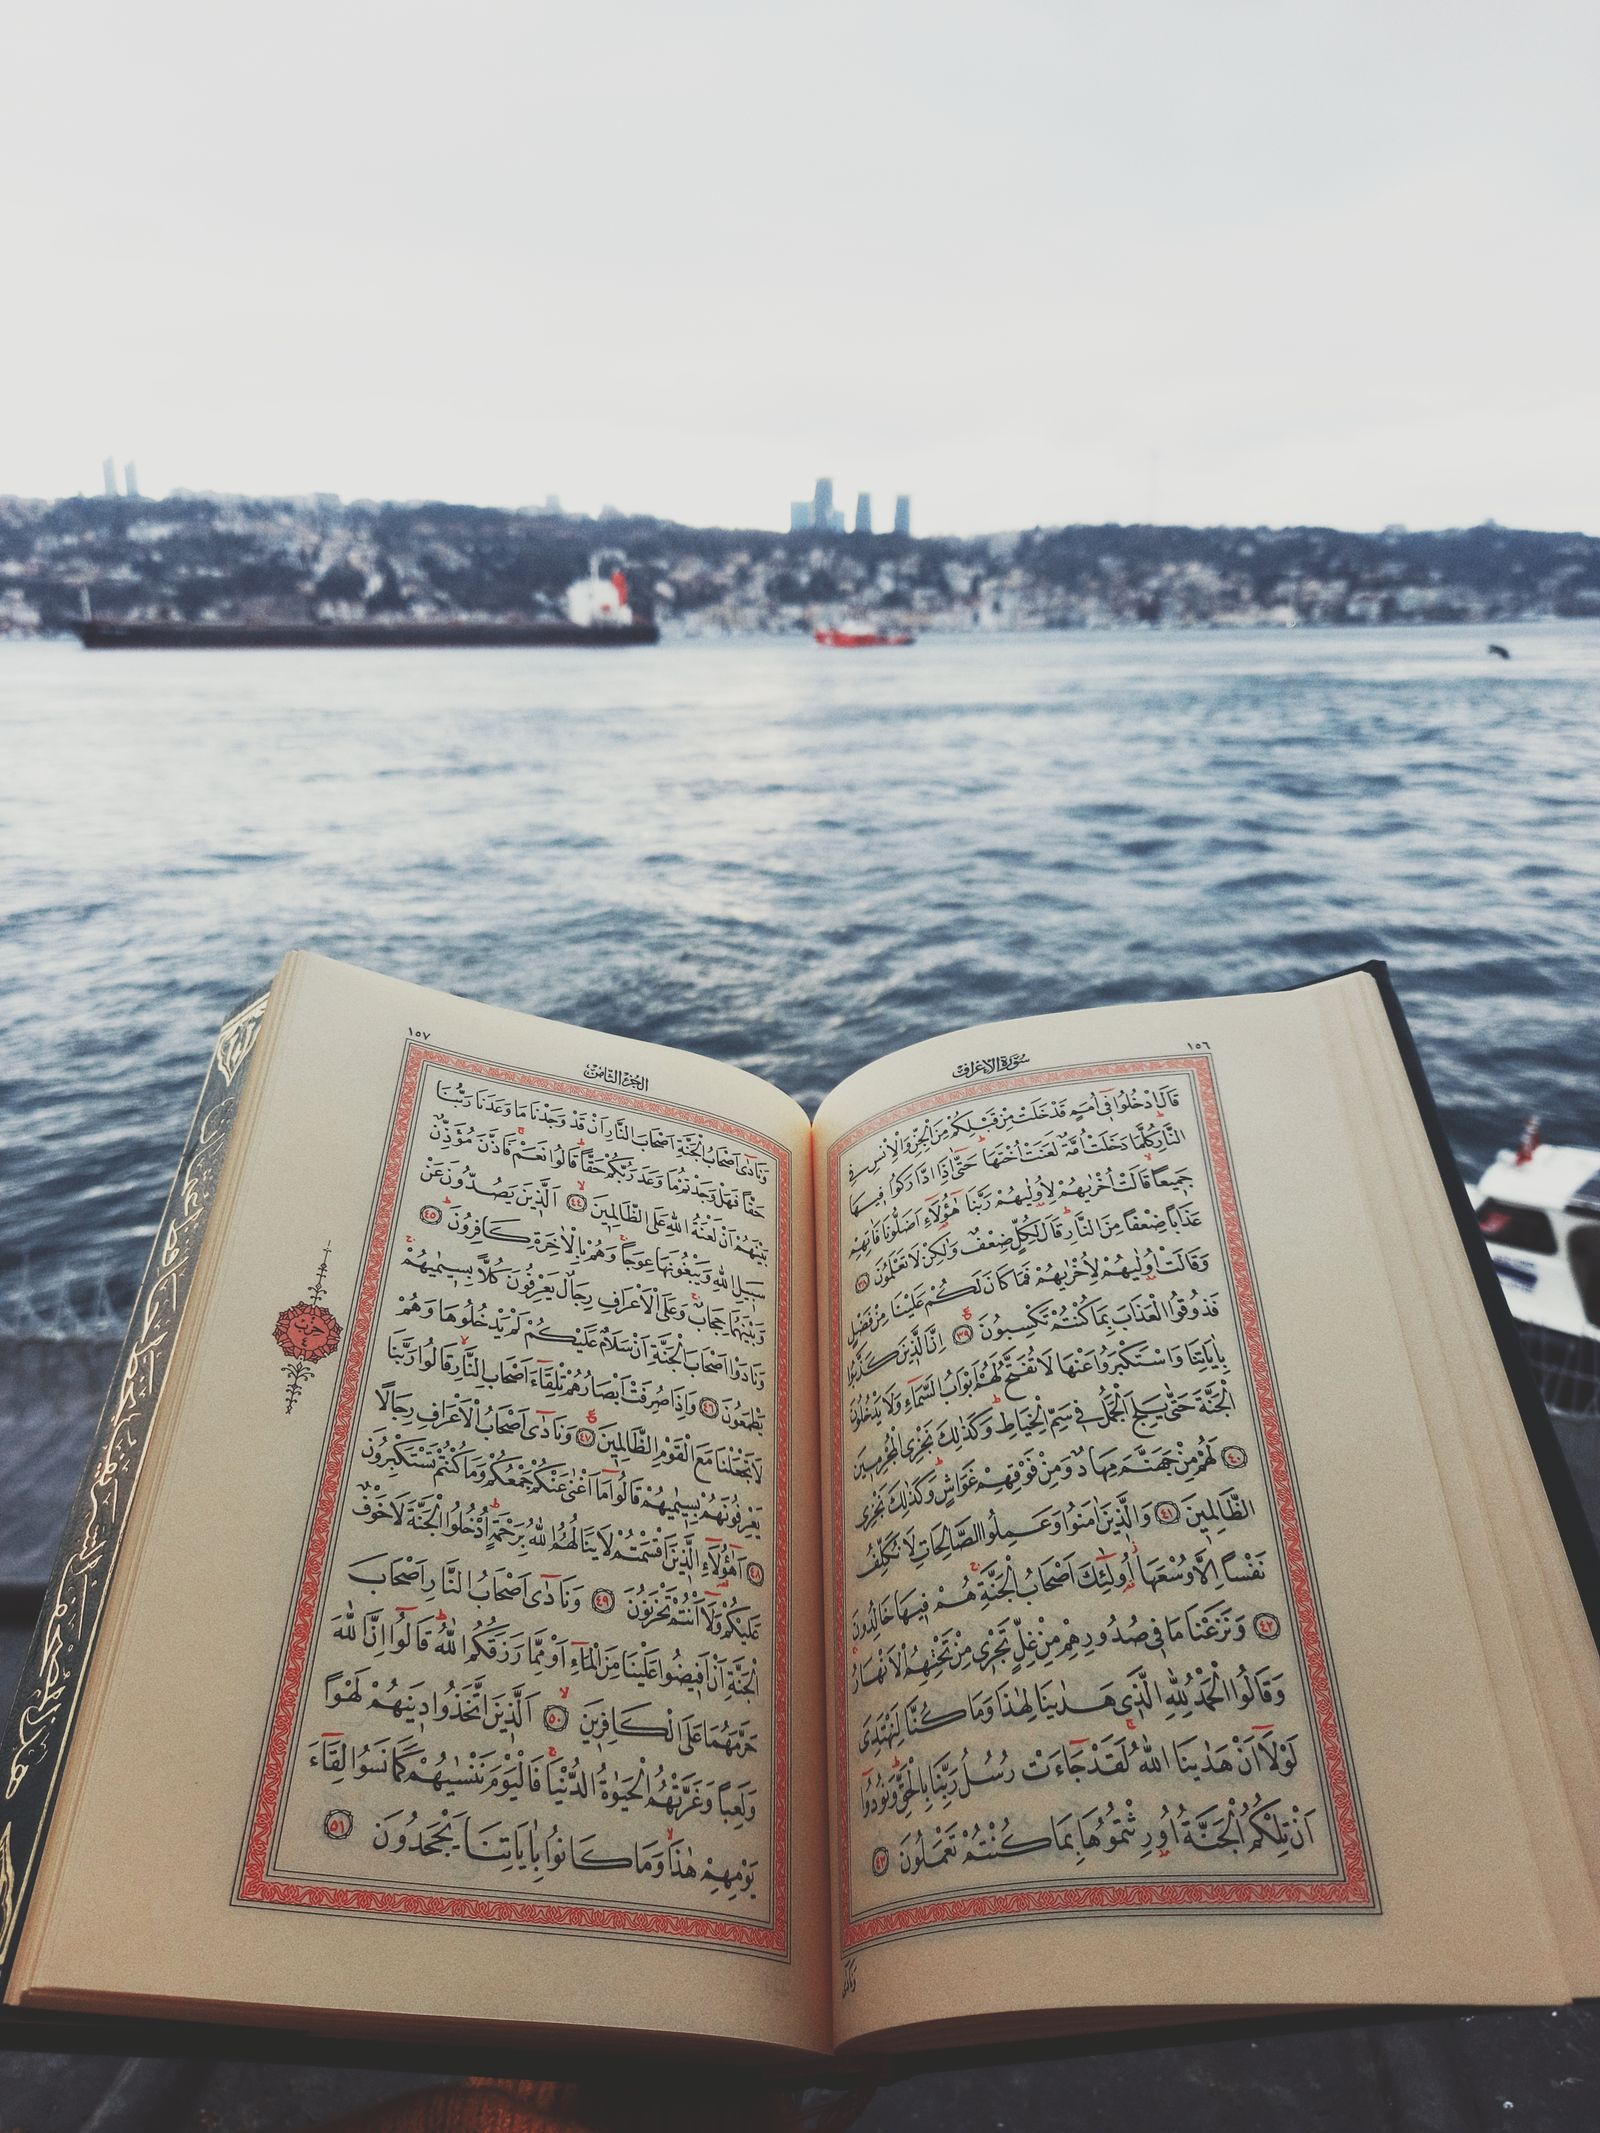 ١٥٦
سورة الاعراف
قَالَ ادْخُلُوا فٖٓي اُمَمٍ قَدْ خَلَتْ مِنْ قَبْلِكُمْ مِنَ الْجِنِّ وَالْاِنْسِ فِي
النَّارِ كُلَّمَا دَخَلَتْ اُمَّةٌ لَعَنَتْ اُخْتَهَا حَتّٰٓى اِذَا ادَّارَكُوا فٖيهَا
جَمٖيعاً قَالَتْ اُخْرٰيهُمْ لِاُو۫لٰيهُمْ رَبَّنَا هٰٓؤُ۬لَٓاءِ اَضَلُّونَا فَاٰتِهِمْ
عَذَاباً ضِعْفاً مِنَ النَّارِ قَالَ لِكُلٍّ ضِعْفٌ وَلٰكِنْ لَا تَعْلَمُونَ ٣٨
وَقَالَتْ اُو۫لٰيهُمْ لِاُخْرٰيهُمْ فَمَا كَانَ لَكُمْ عَلَيْنَا مِنْ فَضْلٍ
فَذُوقُوا الْعَذَابَ بِمَا كُنْتُمْ تَكْسِبُونَ ٣٩ اِنَّ الَّذٖينَ كَذَّبُوا
بِاٰيَاتِنَا وَاسْتَكْبَرُوا عَنْهَا لَا تُفَتَّحُ لَهُمْ اَبْوَابُ السَّمَٓاءِ وَلَا يَدْخُلُونَ
الْجَنَّةَ حَتّٰى يَلِجَ الْجَمَلُ فٖي سَمِّ الْخِيَاطِ وَكَذٰلِكَ نَجْزِي الْمُجْرِمٖينَ
٤٠ لَهُمْ مِنْ جَهَنَّمَ مِهَادٌ وَمِنْ فَوْقِهِمْ غَوَاشٍ وَكَذٰلِكَ نَجْزِي
الظَّالِمٖينَ ٤١ وَالَّذٖينَ اٰمَنُوا وَعَمِلُوا الصَّالِحَاتِ لَا نُكَلِّفُ
نَفْساً اِلَّا وُسْعَهَٓا اُو۬لٰٓئِكَ اَصْحَابُ الْجَنَّةِ هُمْ فٖيهَا خَالِدُونَ
٤٢ وَنَزَعْنَا مَا فٖي صُدُورِهِمْ مِنْ غِلٍّ تَجْرٖي مِنْ تَحْتِهِمُ الْاَنْهَارُ
وَقَالُوا الْحَمْدُ لِلّٰهِ الَّذٖي هَدٰينَا لِهٰذَا وَمَا كُنَّا لِنَهْتَدِيَ
لَوْلَٓا اَنْ هَدٰينَا اللّٰهُ لَقَدْ جَٓاءَتْ رُسُلُ رَبِّنَا بِالْحَقِّ وَنُودُٓوا
اَنْ تِلْكُمُ الْجَنَّةُ اُو۫رِثْتُمُوهَا بِمَا كُنْتُمْ تَعْمَلُونَ ٤٣
١٥٧
الجزء الثامن
وَنَادٰٓى اَصْحَابُ الْجَنَّةِ اَصْحَابَ النَّارِ اَنْ قَدْ وَجَدْنَا مَا وَعَدَنَا رَبُّنَا
حَقاًّ فَهَلْ وَجَدْتُمْ مَا وَعَدَ رَبُّكُمْ حَقاًّ قَالُوا نَعَمْ فَاَذَّنَ مُؤَذِّنٌ
بَيْنَهُمْ اَنْ لَعْنَةُ اللّٰهِ عَلَى الظَّالِمٖينَ ٤٤ اَلَّذٖينَ يَصُدُّونَ عَنْ
سَبٖيلِ اللّٰهِ وَيَبْغُونَهَا عِوَجاً وَهُمْ بِالْاٰخِرَةِ كَافِرُونَ ٤٥
وَبَيْنَهُمَا حِجَابٌ وَعَلَى الْاَعْرَافِ رِجَالٌ يَعْرِفُونَ كُلاًّ بِسٖيمٰيهُمْ
وَنَادَوْا اَصْحَابَ الْجَنَّةِ اَنْ سَلَامٌ عَلَيْكُمْ لَمْ يَدْخُلُوهَا وَهُمْ
يَطْمَعُونَ ٤٦ وَاِذَا صُرِفَتْ اَبْصَارُهُمْ تِلْقَٓاءَ اَصْحَابِ النَّارِ قَالُوا رَبَّنَا
لَا تَجْعَلْنَا مَعَ الْقَوْمِ الظَّالِمٖينَ ٤٧ وَنَادٰٓى اَصْحَابُ الْاَعْرَافِ رِجَالاً
يَعْرِفُونَهُمْ بِسٖيمٰيهُمْ قَالُوا مَٓا اَغْنٰى عَنْكُمْ جَمْعُكُمْ وَمَا كُنْتُمْ تَسْتَكْبِرُونَ
٤٨ اَهٰٓؤُ۬لَٓاءِ الَّذٖينَ اَقْسَمْتُمْ لَا يَنَالُهُمُ اللّٰهُ بِرَحْمَةٍ اُدْخُلُوا الْجَنَّةَ لَا خَوْفٌ
عَلَيْكُمْ وَلَٓا اَنْتُمْ تَحْزَنُونَ ٤٩ وَنَادٰٓى اَصْحَابُ النَّارِ اَصْحَابَ
الْجَنَّةِ اَنْ اَفٖيضُوا عَلَيْنَا مِنَ الْمَٓاءِ اَوْ مِمَّا رَزَقَكُمُ اللّٰهُ قَالُٓوا اِنَّ اللّٰهَ
حَرَّمَهُمَا عَلَى الْكَافِرٖينَ ٥٠ اَلَّذٖينَ اتَّخَذُوا دٖينَهُمْ لَهْواً
وَلَعِباً وَغَرَّتْهُمُ الْحَيٰوةُ الدُّنْيَا فَالْيَوْمَ نَنْسٰيهُمْ كَمَا نَسُوا لِقَٓاءَ
يَوْمِهِمْ هٰذَا وَمَا كَانُوا بِاٰيَاتِنَا يَجْحَدُونَ ٥١
حزب
٤